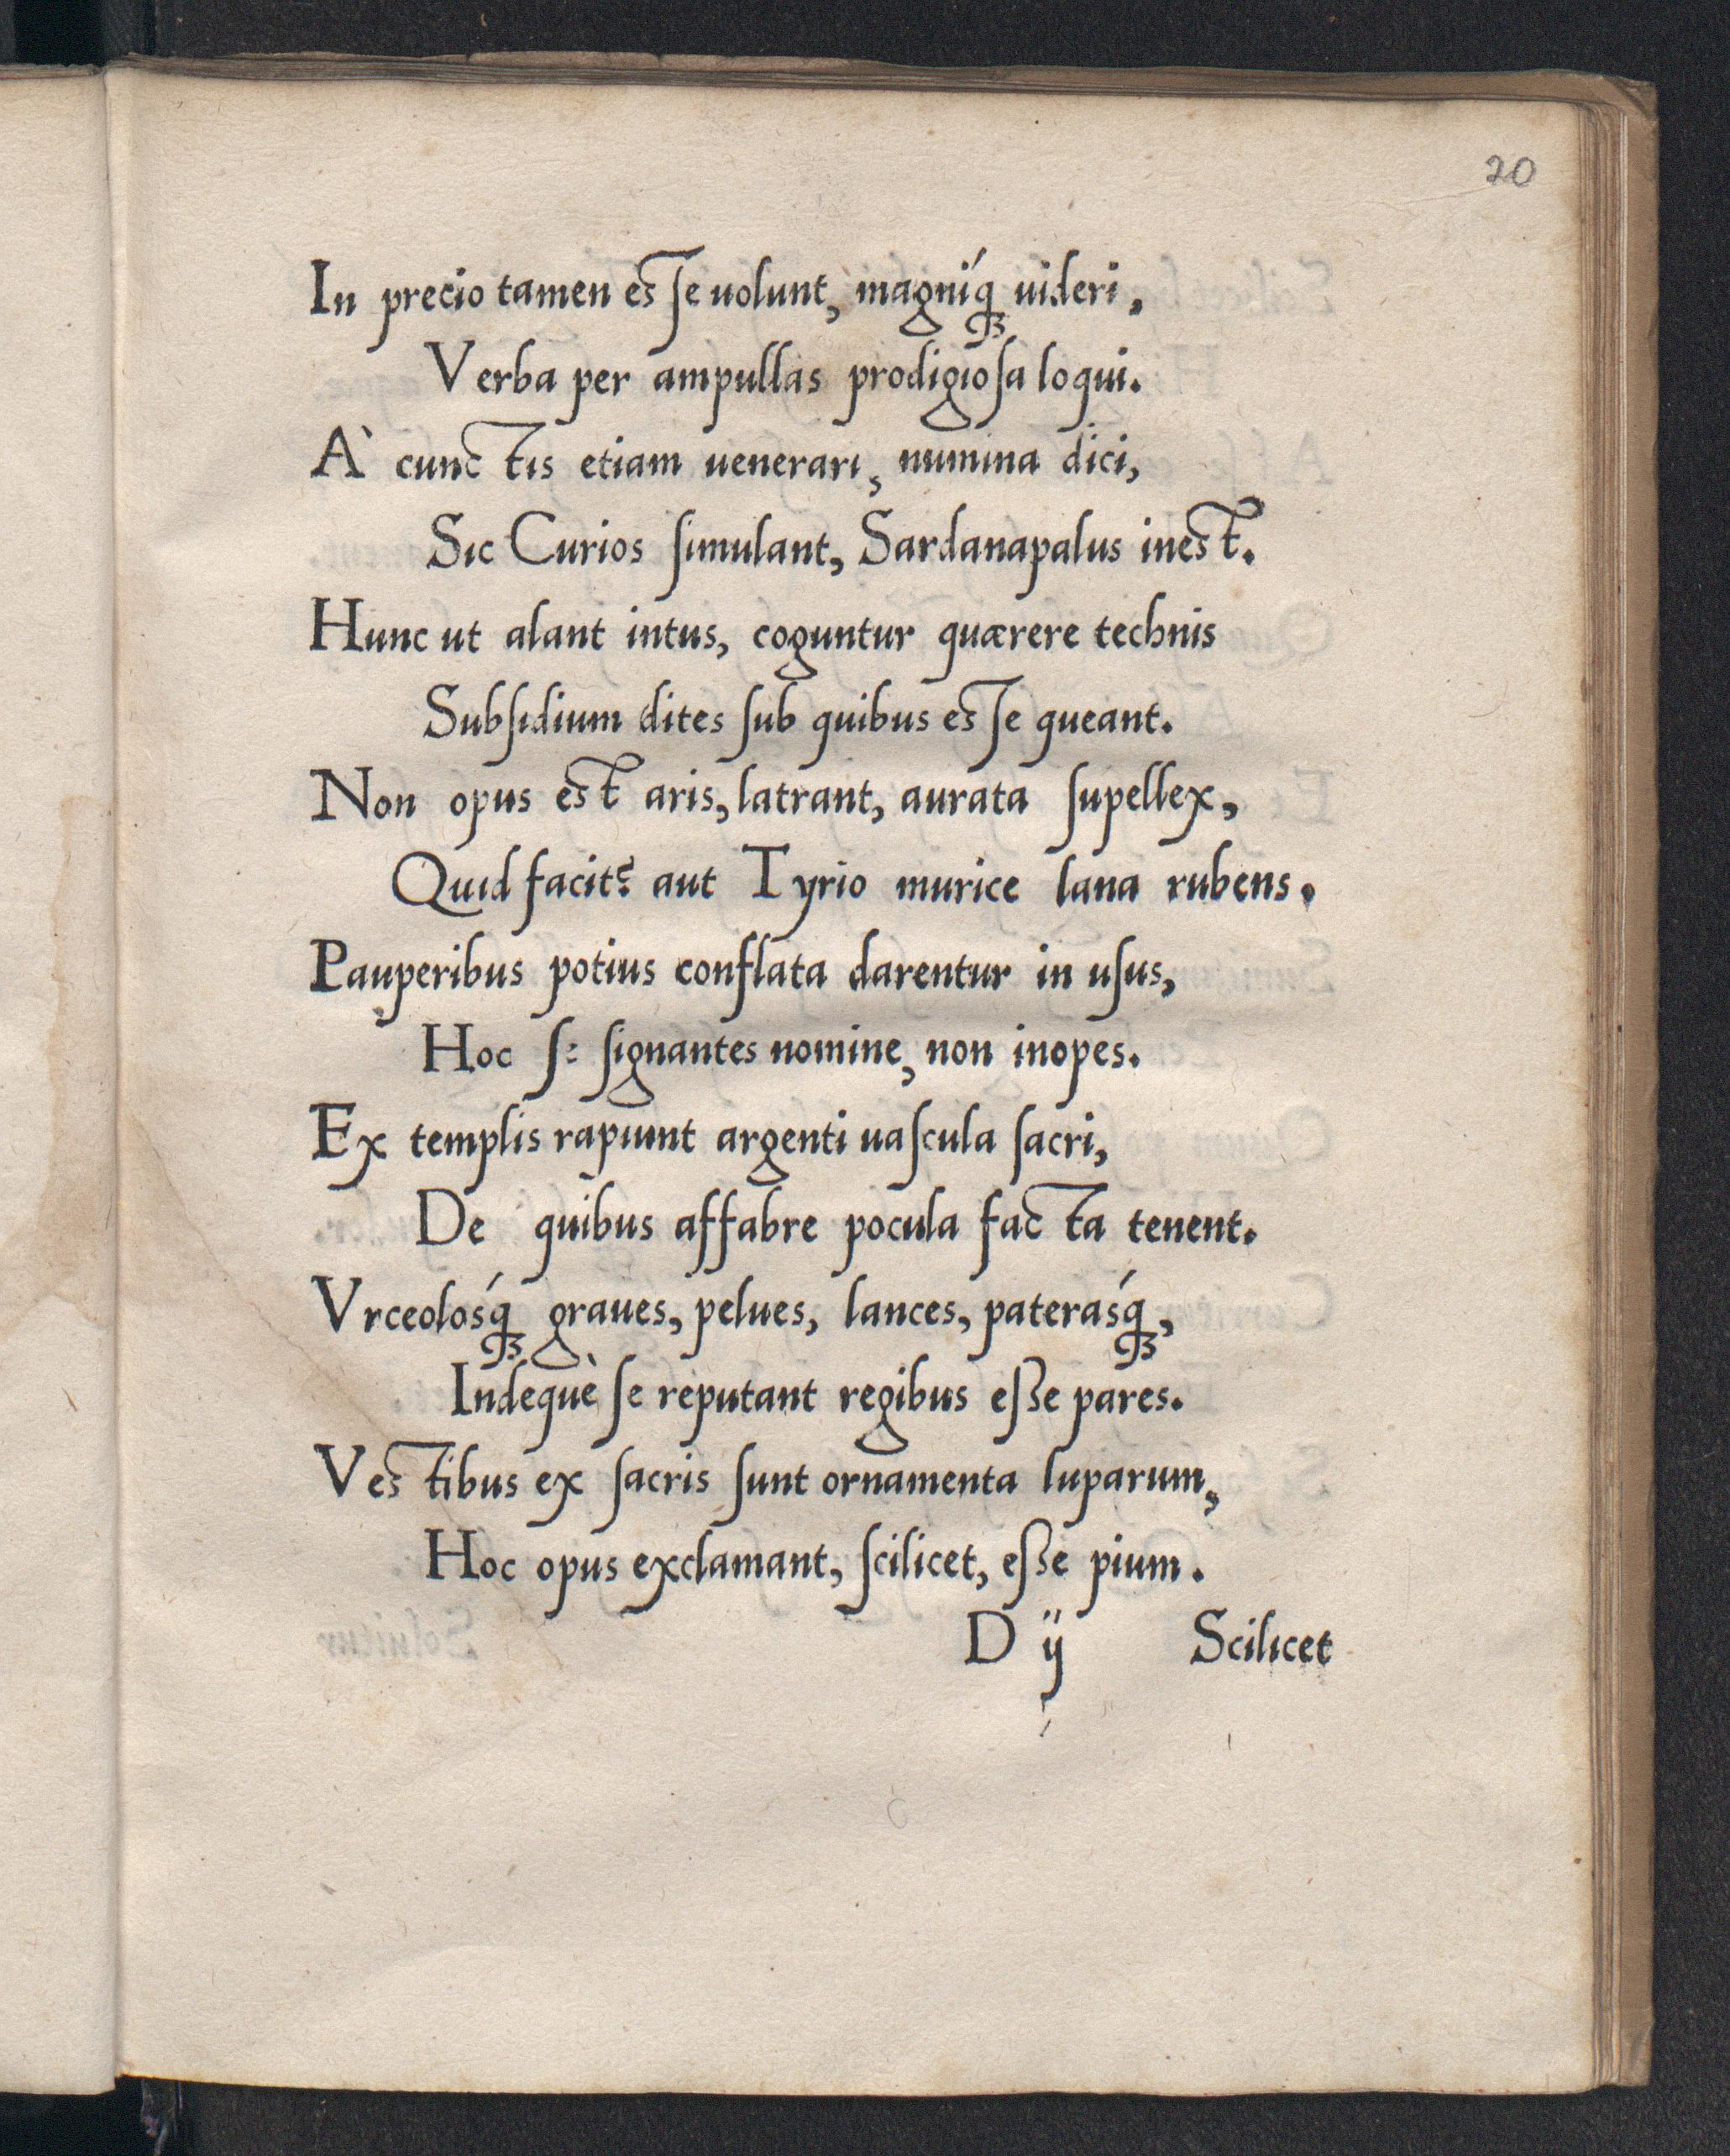 20
In precio tamen esſe uolunt, magniq́ꝫ uideri,
Verba per ampullas prodigioſa loqui.
A` cunctis etiam uenerari, numina dici,
Sic Curios ſimulant, Sardanapalus inest.
Hunc ut alant intus, coguntur quærere technis
Subſidium dites ſub quibus esſe queant.
Non opus est aris, latrant, aurata ſupellex,
Quid facit? aut Tyrio murice lana rubens.
Pauperibus potius conflata darentur in uſus,
Hoc ſe ſignantes nomine, non inopes.
Ex templis rapiunt argenti uaſcula ſacri,
De quibus affabre pocula facta tenent.
Vrceolosq́ꝫ graues, pelues, lances, paterasq́ꝫ,
Indequè ſe reputant regibus eſſe pares.
Vestibus ex ſacris ſunt ornamenta luparum,
Hoc opus exclamant, ſcilicet, eſſe pium.
D ij Scilicet